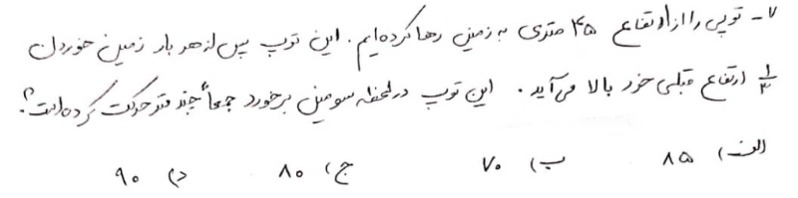 ۷- توپی را از ارتفاع ۴۵ متری به زمین رها کرده‌ایم. این توپ پس از هر بار زمین خوردن
۱/۳ ارتفاع قبلی خود بالا می‌آید. این توپ در لحظه سومین برخورد جمعاً چند متر حرکت کرده است؟
الف) ۸۵ ب) ۷۰ ج) ۸۰ د) ۹۰